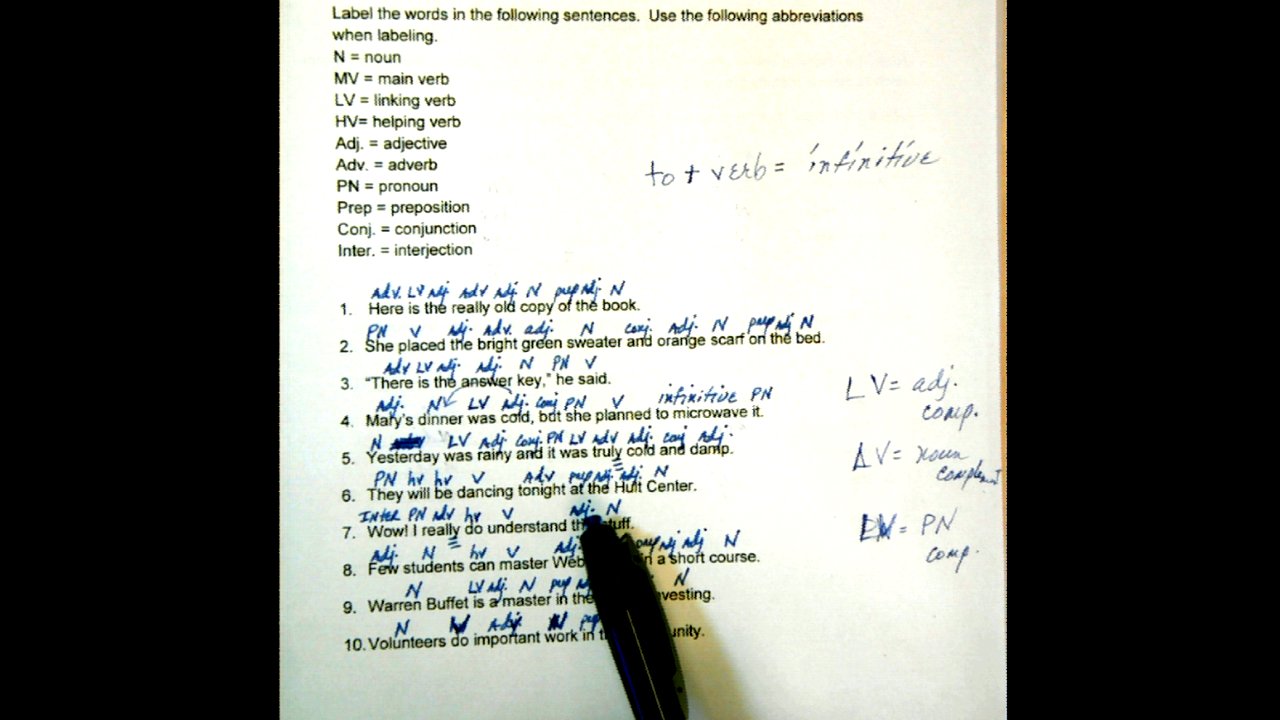 Label the words in the following sentences. Use the following abbreviations
when labeling.
N = noun
MV = main verb
LV = linking verb
HV= helping verb
Adj. = adjective
Adv. = adverb
to + verb = infinitive
PN = pronoun
Prep = preposition
Conj. = conjunction
Inter. = interjection
Adv. LV Adj. Adv Adj. N prep Adj N
1. Here is the really old copy of the book.
PN V Adj. Adv. adj. N conj. Adj. N prep Adj N
2. She placed the bright green sweater and orange scarf on the bed.
Adv LV adj. Adj. N PN V
3. "There is the answer key," he said.
LV = adj.
comp.
Adj. N LV Adj. Conj PN V infinitive PN
4. Mary's dinner was cold, but she planned to microwave it.
N LV Adj Conj. PN LV Adv Adj. conj Adj.
5. Yesterday was rainy and it was truly cold and damp.
LV = noun
complement
PN hv hv V Adv prep Adj. adj. N
6. They will be dancing tonight at the Hult Center.
Inter PN adv hv V adj. N
7. Wow! I really do understand stuff.
= PN
comp.
Adj. N hv V Adj. adj adj N
8. Few students can master in a short course.
N LV adj. N prep N
9. Warren Buffet is a master in the
N Adj.
10. Volunteers do important work in